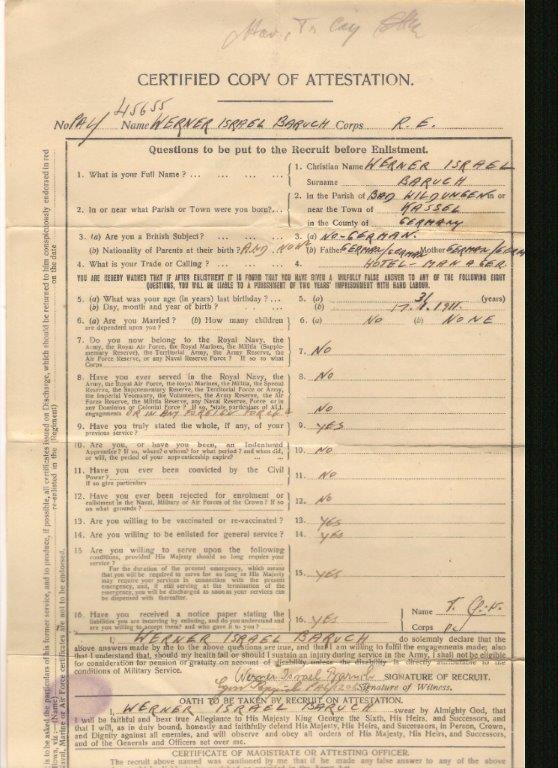 CERTIFIED COPY OF ATTESTATION.
No PAL/ 45655 Name WERNER ISRAEL BARUCH Corps R. E.
Questions to be put to the Recruit before Enlistment.
1. What is your Full Name? ... 1. Christian Name WERNER ISRAEL
Surname BARUCH
2. In or near what Parish or Town were you born?... 2. In the Parish of BAD WILDUNGENG
near the Town of KASSEL
in the County of GERMANY
3. (a) Are you a British Subject? ... 3. (a) NO-GERMAN.
(b) Nationality of Parents at their birth? AND NOW? (b) Father GERMAN/GERMAN Mother GERMAN/GERM
4. What is your Trade or Calling? ... 4. HOTEL-MANAGER.
YOU ARE HEREBY WARNED THAT IF AFTER ENLISTMENT IT IS FOUND THAT YOU HAVE GIVEN A WILFULLY FALSE ANSWER TO ANY OF THE FOLLOWING EIGHT
QUESTIONS, YOU WILL BE LIABLE TO A PUNISHMENT OF TWO YEARS' IMPRISONMENT WITH HARD LABOUR.
5. (a) What was your age (in years) last birthday? ... 5. (a) 31 (years)
(b) Day, month and year of birth? ... (b) 1911.
6. (a) Are you Married? (b) How many children 6. (a) NO (b) NONE
are dependent upon you?
7. Do you now belong to the Royal Navy, the
Army, the Royal Air Force, the Royal Marines, the Militia (Supple-
mentary Reserve), the Territorial Army, the Army Reserve, the
Air Force Reserve, or any Naval Reserve Force? If so to what
Corps 7. NO
8. Have you ever served in the Royal Navy, the
Army, the Royal Air Force, the Royal Marines, the Militia, the Special
Reserve, the Supplementary Reserve, the Territorial Force or Army,
the Imperial Yeomanry, the Volunteers, the Army Reserve, the Air
Force Reserve, the Militia Reserve, any Naval Reserve Force or in
any Dominion or Colonial Force? If so, state particulars of ALL
engagements OR IN ANY FOREIGN FORCE? 8. NO
NO
9. Have you truly stated the whole, if any, of your
previous service? 9. YES
10. Are you, or have you been, an Indentured
Apprentice? If so, when? to whom? for what period? and when did,
or will, the period of your apprenticeship expire? 10. NO
11. Have you ever been convicted by the Civil
Power?
If so give particulars 11. NO
12. Have you ever been rejected for enrolment or
enlistment in the Naval, Military or Air Forces of the Crown? If so
on what grounds? 12. NO
13. Are you willing to be vaccinated or re-vaccinated? 13. YES
14. Are you willing to be enlisted for general service? 14. YES
15. Are you willing to serve upon the following
conditions, provided His Majesty should so long require
your services?
For the duration of the present emergency, which means
that you will be required to serve for so long as His Majesty
may require your services in connection with the present
emergency, and, if still serving at the termination of the
emergency, you will be discharged as soon as your services can
be dispensed with thereafter. 15. YES
16. Have you received a notice paper stating the
liabilities you are incurring by enlisting, and do you understand and
are you willing to accept them? and who gave it to you? 16. YES Name
Corps
I, WERNER ISRAEL BARUCH do solemnly declare that the
above answers made by me to the above questions are true, and that I am willing to fulfil the engagements made; also
that I understand that, should my health fail or should I sustain an injury during service in the Army, I shall not be eligible
for consideration for pension or gratuity on account of disability, unless the disability is directly attributable to the
conditions of Military Service.
Werner Israel Baruch SIGNATURE OF RECRUIT.
Signature of Witness.
OATH TO BE TAKEN BY RECRUIT ON ATTESTATION.
I, WERNER ISRAEL BARUCH swear by Almighty God, that I
will be faithful and bear true Allegiance to His Majesty King George the Sixth, His Heirs, and Successors, and
that I will, as in duty bound, honestly and faithfully defend His Majesty, His Heirs, and Successors, in Person, Crown,
and Dignity against all enemies, and will observe and obey all orders of His Majesty, His Heirs, and Successors,
and of the Generals and Officers set over me.
CERTIFICATE OF MAGISTRATE OR ATTESTING OFFICER.
The recruit above named was cautioned by me that if he made any false answer to any of the above
to be asked the particulars of his former service, and to produce, if possible, all certificates issued on Discharge, which should be returned to him conspicuously endorsed in red
re-enlisted in the (Regiment)